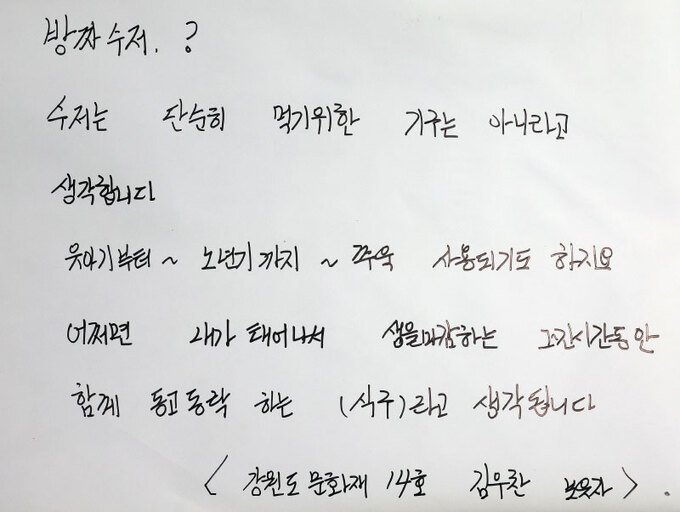 방짜수저. ?
수저는 단순히 먹기위한 기구는 아니라고
생각합니다
웃아기부터 ~ 노년기까지 ~ 쭈욱 사용되기도 하지요
어쩌면 내가 태어나서 생을마감하는 그긴시간동안
함께 동고동락 하는 (식구)라고 생각됩니다
< 강원도 문화재 14호 김우찬 보유자 > .